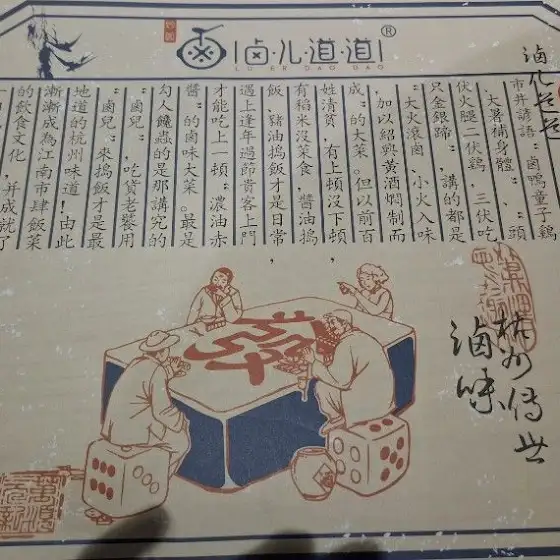 卤·儿·道·道®
LU ER DAO DAO
市井諺語：鹵鴨童子鷄
大暑補身體：：頭
伏火腿二伏鷄，三伏吃
只金銀蹄：講的都是
大火滾鹵、小火入味
加以紹興黄酒燜制而
成：的大菜。但以前百
姓清貧，有上頓沒下頓，
有稻米沒菜食，醬油搗
飯、豬油搗飯才是日常，
遇上逢年過節貴客上門
才能吃上一頓：濃油赤
醬：的鹵味大菜。最是
勾人饞蟲的是那講究的
鹵兒：吃貨老饕用
鹵兒：來搗飯才是最
地道的杭州味道！由此
漸漸成為江南市肆飯菜
的飲食文化，并成就了
杭州传世
滷味